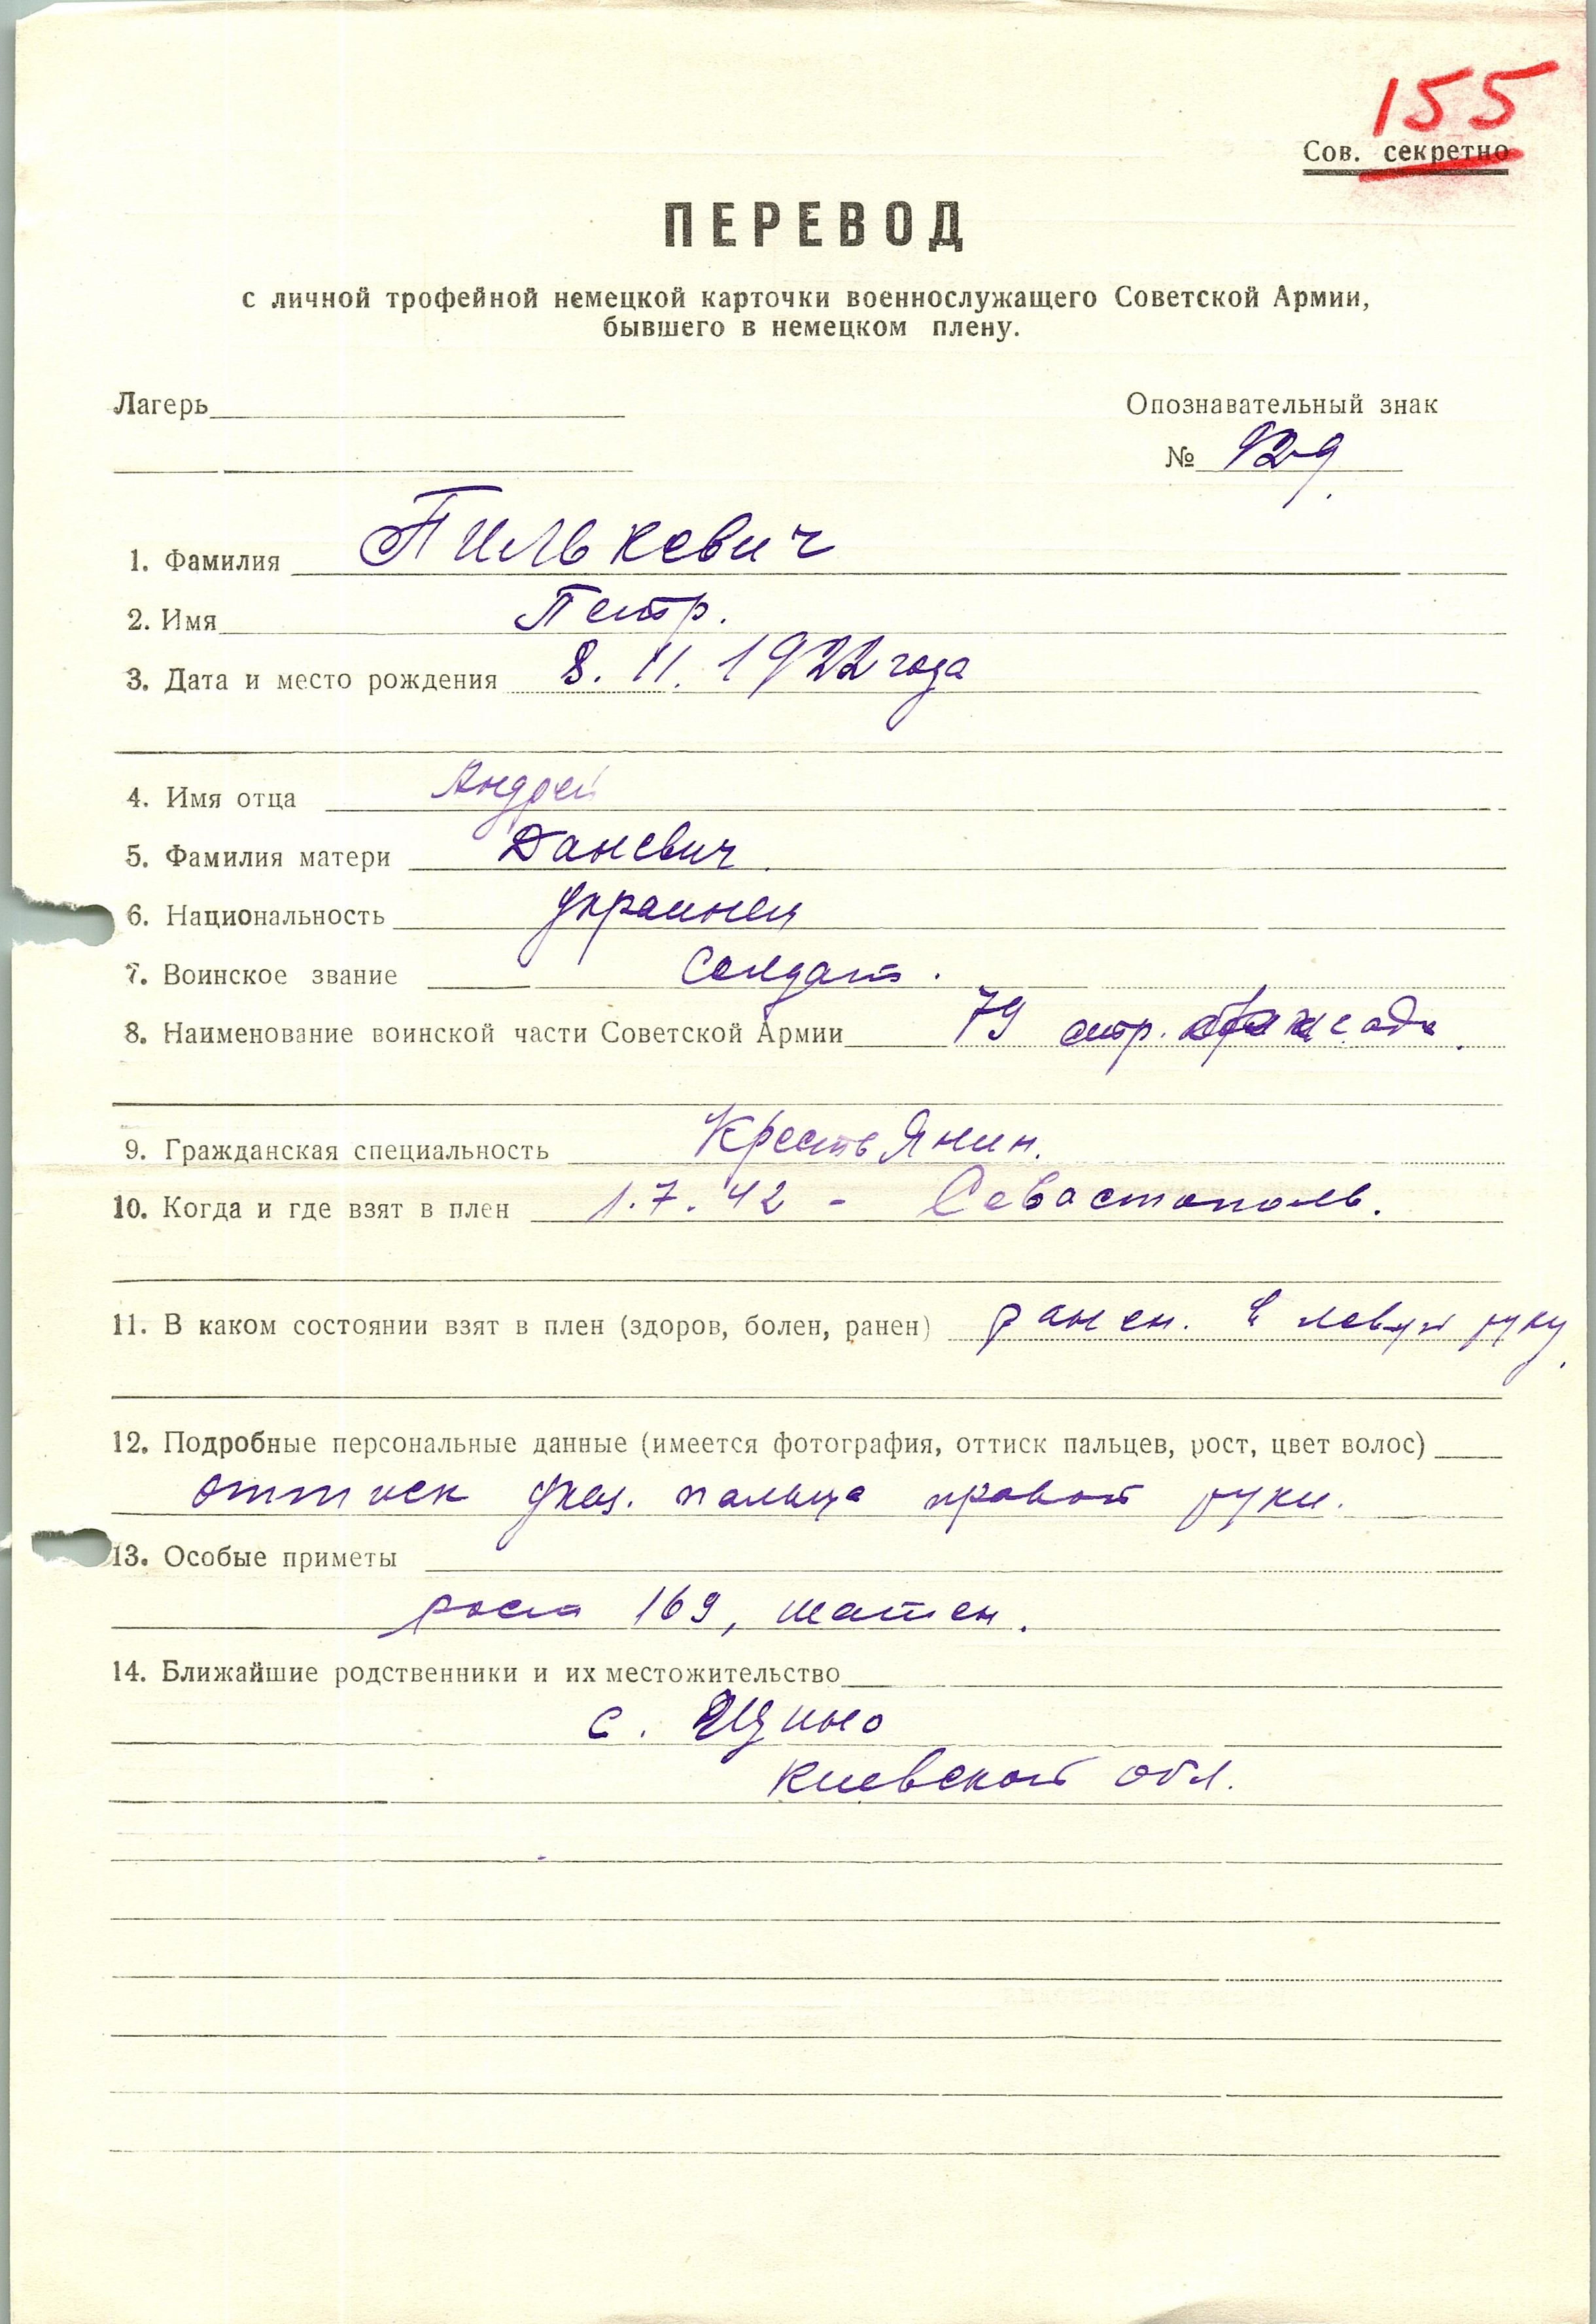 155
Сов. секретно
ПЕРЕВОД
с личной трофейной немецкой карточки военнослужащего Советской Армии,
бывшего в немецком плену.
Лагерь
Опознавательный знак
№ 929
1. Фамилия Пилькевич
2. Имя Петр.
3. Дата и место рождения 8. II. 1922 года
4. Имя отца Андрей
5. Фамилия матери Даневич.
6. Национальность Украинец
7. Воинское звание Солдат.
8. Наименование воинской части Советской Армии 79 стр. бригада.
9. Гражданская специальность Крестьянин.
10. Когда и где взят в плен 1.7.42 - Севастополь.
11. В каком состоянии взят в плен (здоров, болен, ранен) ранен. в левую руку.
12. Подробные персональные данные (имеется фотография, оттиск пальцев, рост, цвет волос)
оттиск указ. пальца правой руки.
13. Особые приметы
рост 169, шатен.
14. Ближайшие родственники и их местожительство
с.
Киевской обл.